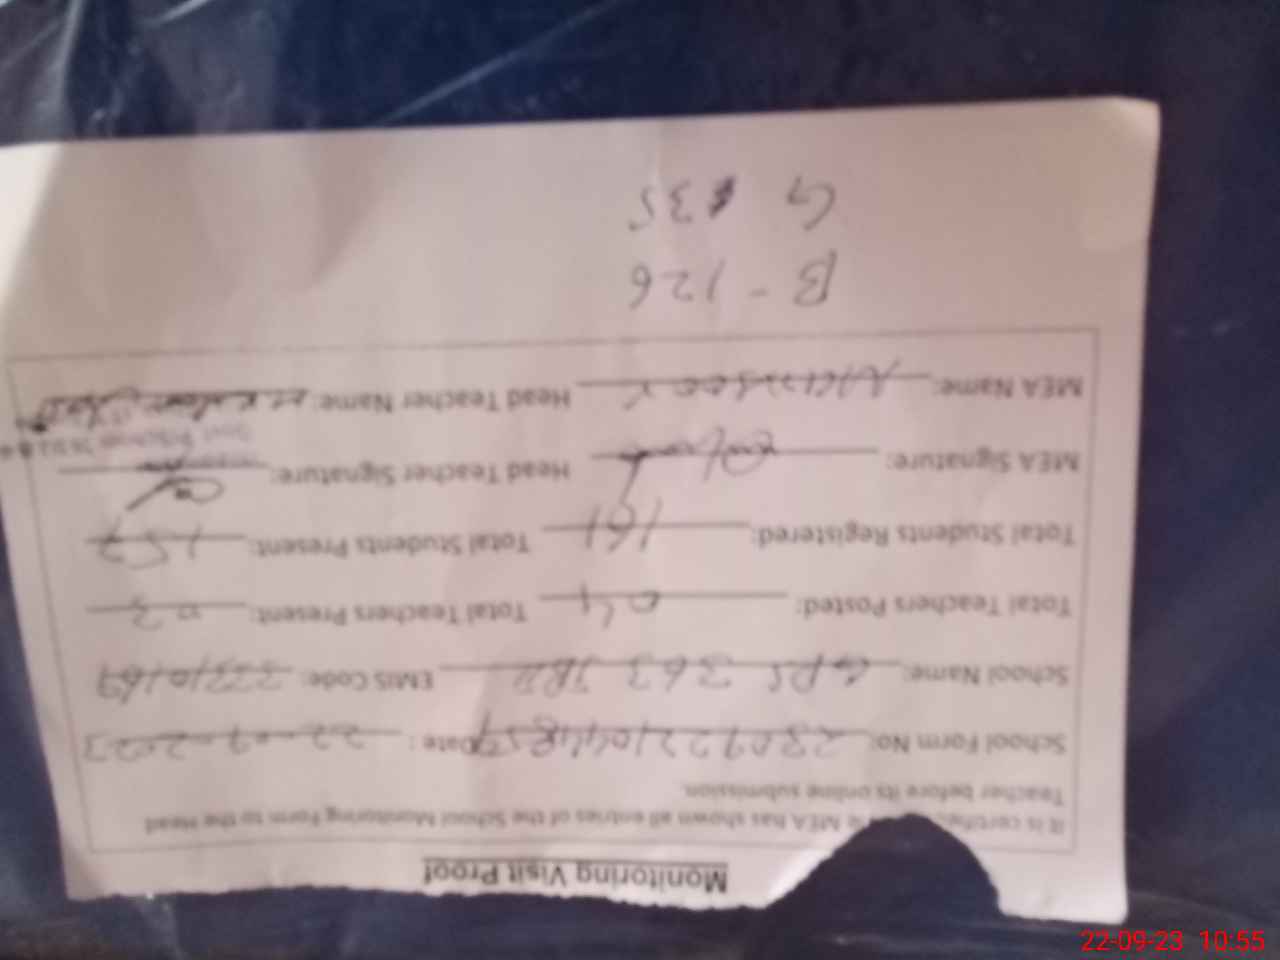 Monitoring Visit Proof
It is certified MEA has shown all entries of the School Monitoring Form to the Head
Teacher before its online submission.
School Form No: Date: 22-09-2023
School Name: GPS 363 JBD EMIS Code: 33310169
Total Teachers Posted: 04 Total Teachers Present: 03
Total Students Registered: 161 Total Students Present: 157
MEA Signature: Head Teacher Signature:
MEA Name: Head Teacher Name:
B - 126
G 35
22-09-23 10:55